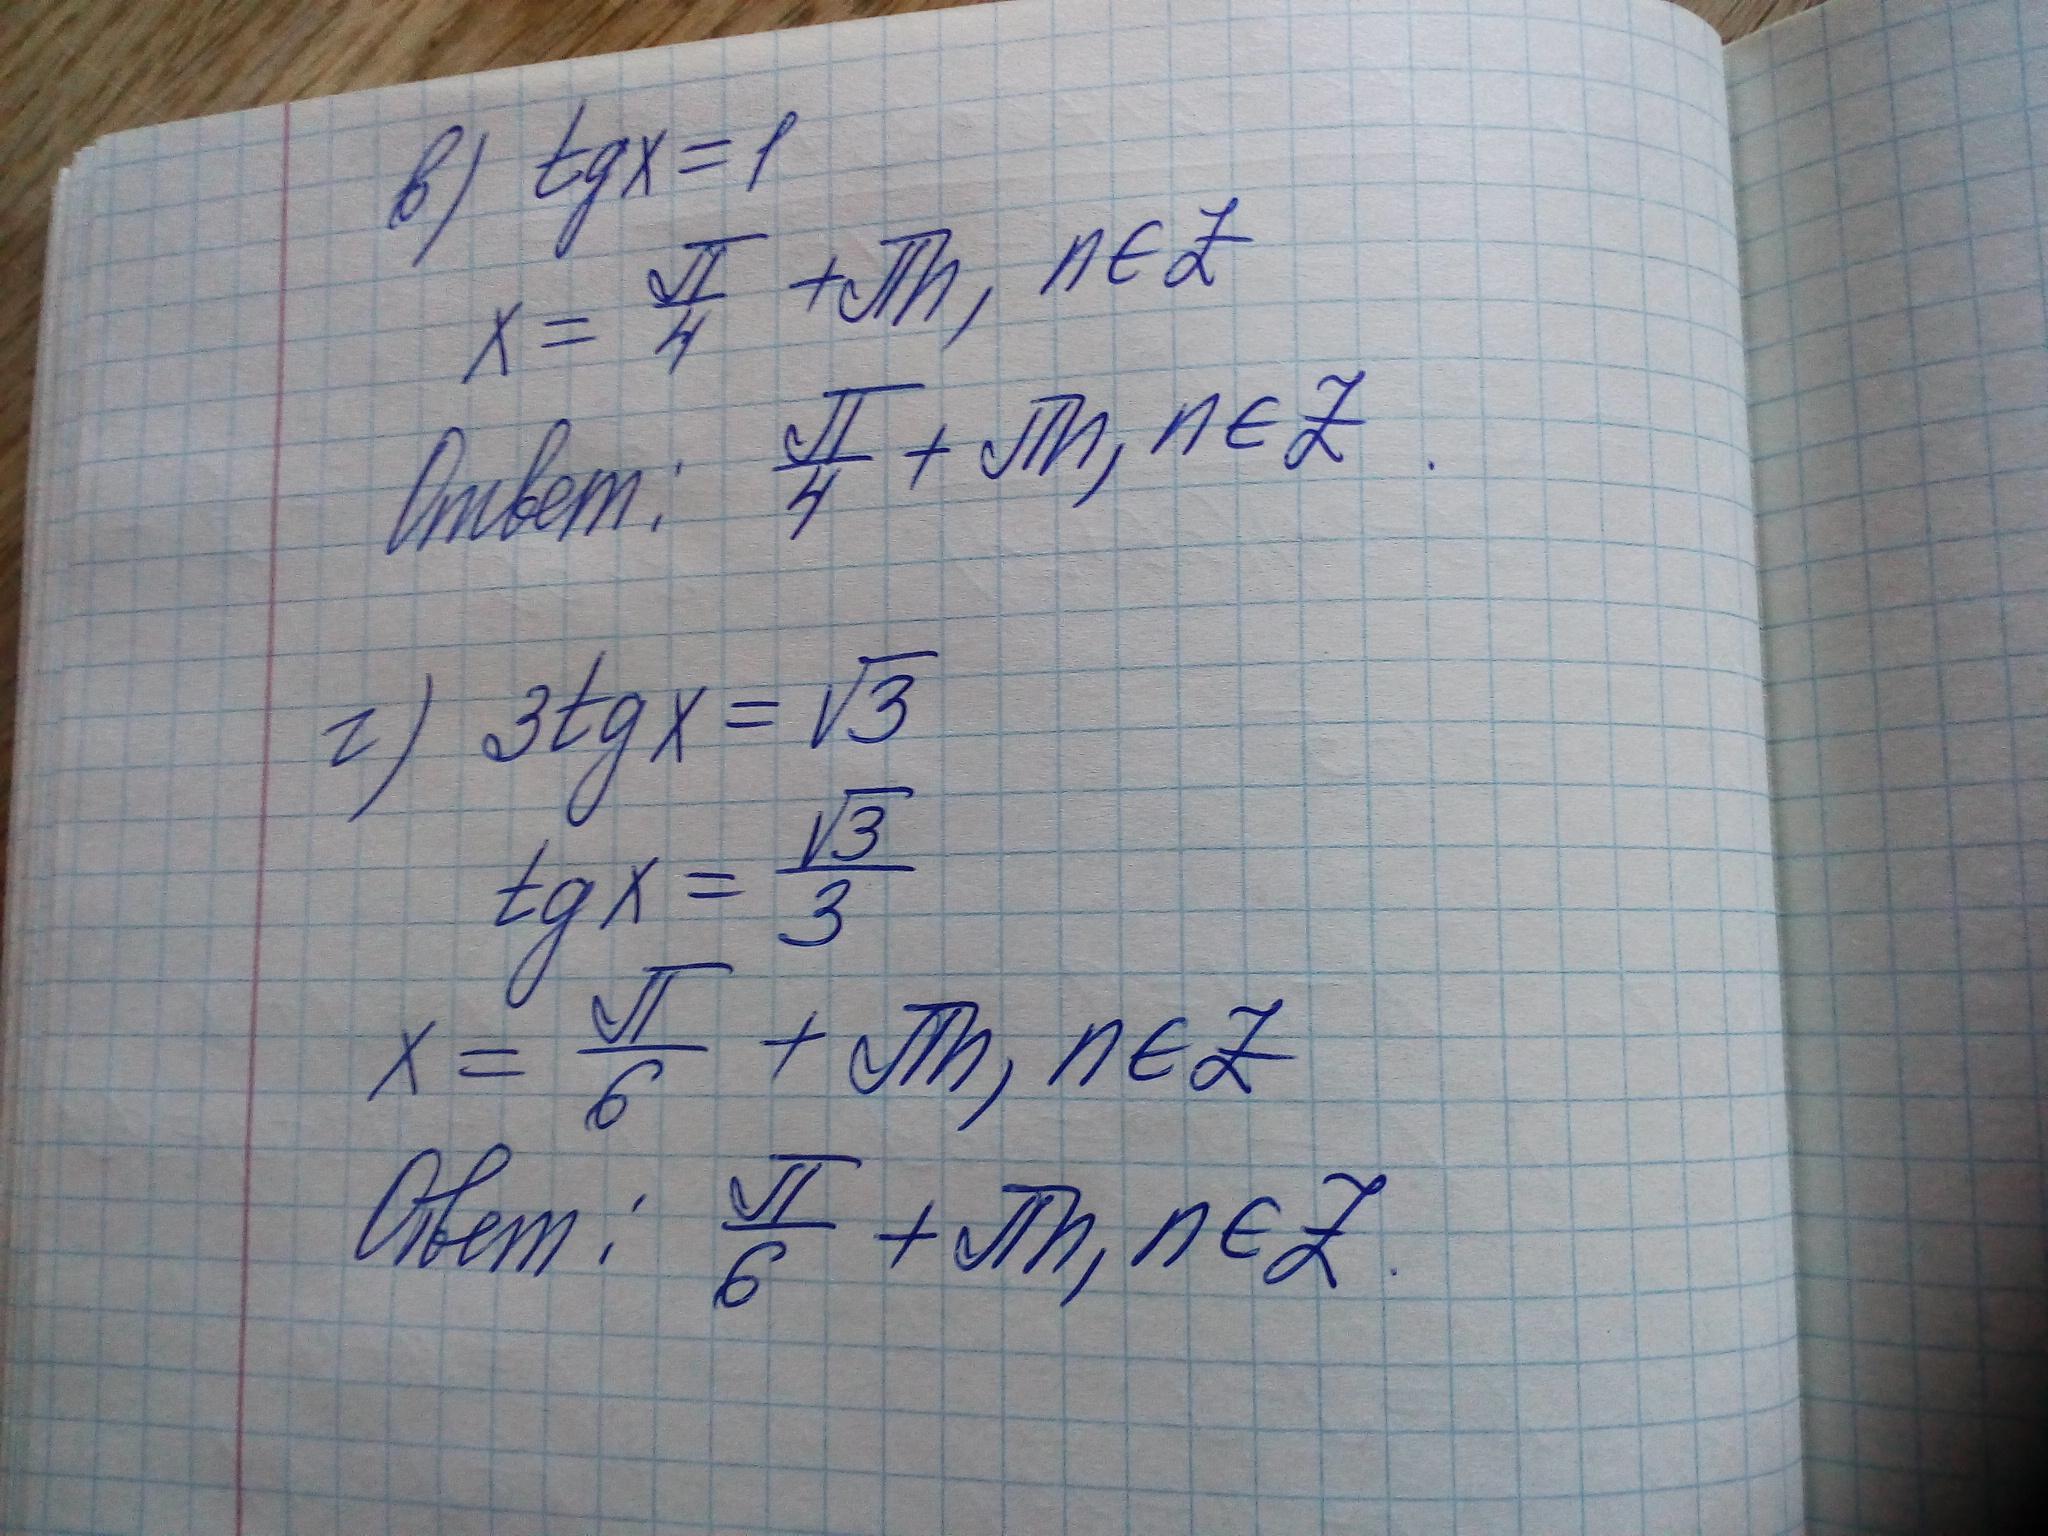 в) tgx = 1
x = π/4 + πn, n ∈ Z
Ответ: π/4 + πn, n ∈ Z.
г) 3tgx = √3
tgx = √3/3
x = π/6 + πn, n ∈ Z
Ответ: π/6 + πn, n ∈ Z.